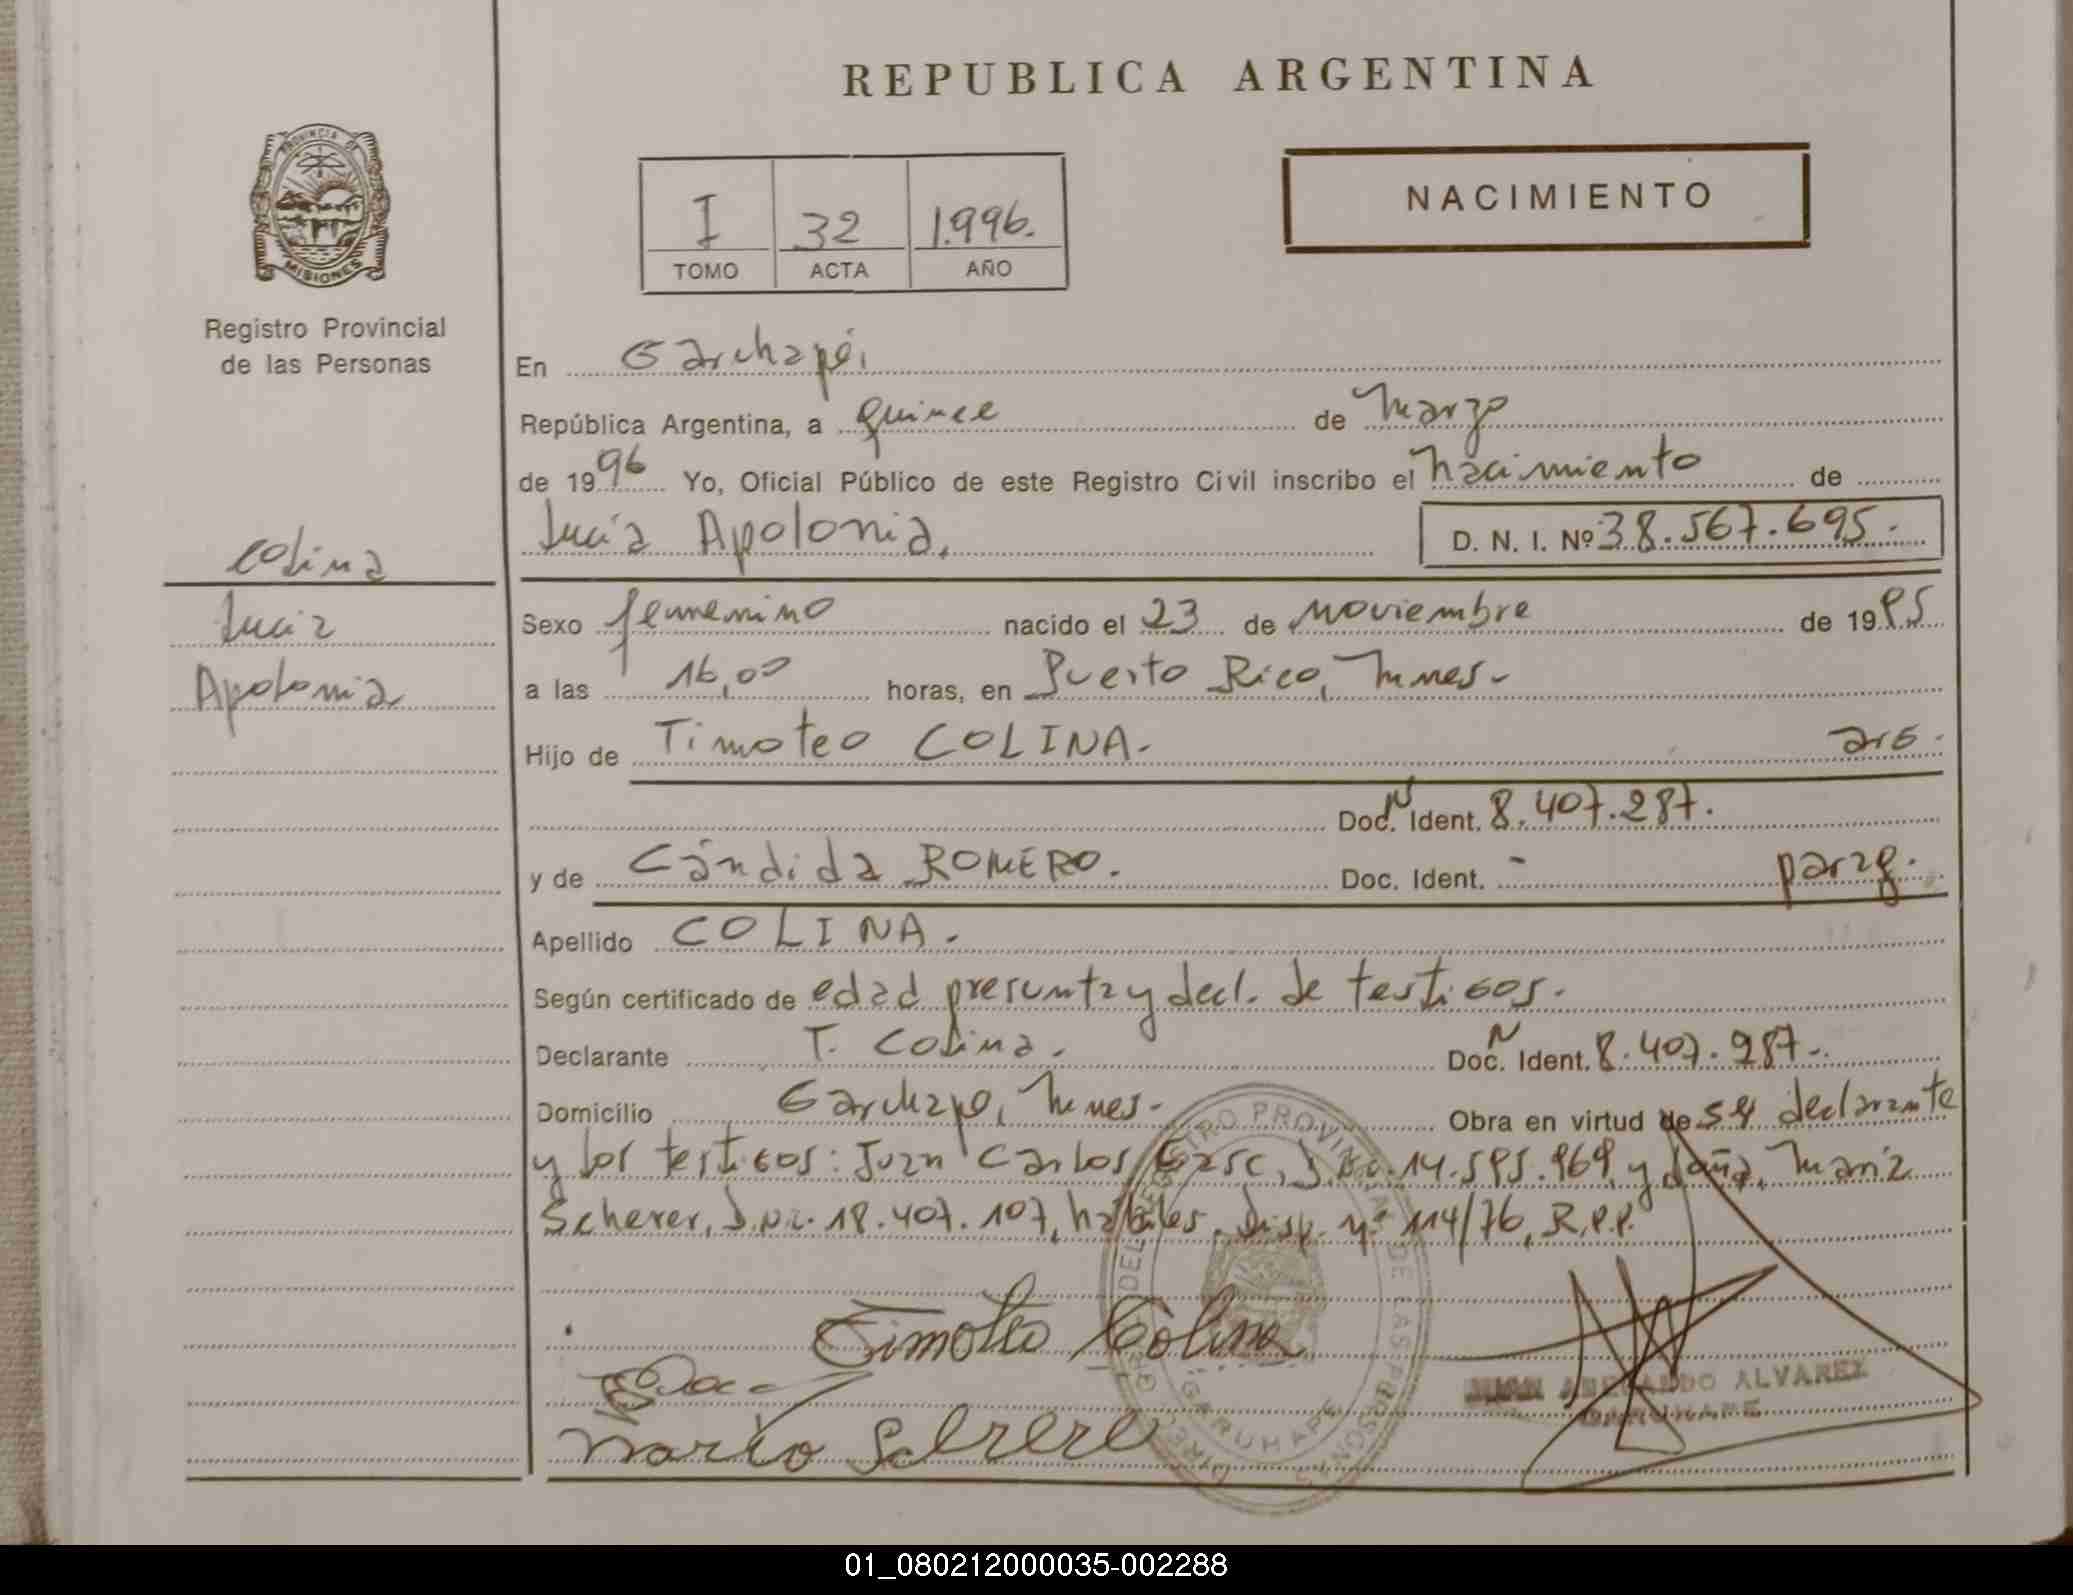 REPUBLICA ARGENTINA
PROVINCIA DE
MISIONES
Registro Provincial
de las Personas
I 32 1.996.
TOMO ACTA AÑO
NACIMIENTO
En Garuhapé,
República Argentina, a quince de marzo
de 1996 Yo, Oficial Público de este Registro Civil inscribo el nacimiento de
Lucía Apolonia. D. N. I. Nº 38.567.695.
Colina
Lucía
Apolonia
Sexo femenino nacido el 23 de noviembre de 1995
a las 16,00 horas, en Puerto Rico, Mnes.
Hijo de Timoteo COLINA. arg.
Doc. N Ident. 8.407.287.
y de Cándida ROMERO. Doc. Ident. - parag.
Apellido COLINA.
Según certificado de edad presunta y decl. de testigos.
Declarante T. Colina. Doc. N Ident. 8.407.287.
Domicilio Garuhapé, Mnes. Obra en virtud de ser declarante
y los testigos: Juan Carlos D.N.I. 14.595.969, y doña María
Scherer, D.N.I. 18.407.107, hábiles. Disp. nº 114/76, R.P.P.
Timoteo Colina
JUAN ALVAREZ
GARUHAPE
REGISTRO PROVINCIAL DE LAS PERSONAS
GARUHAPE
01_080212000035-002288